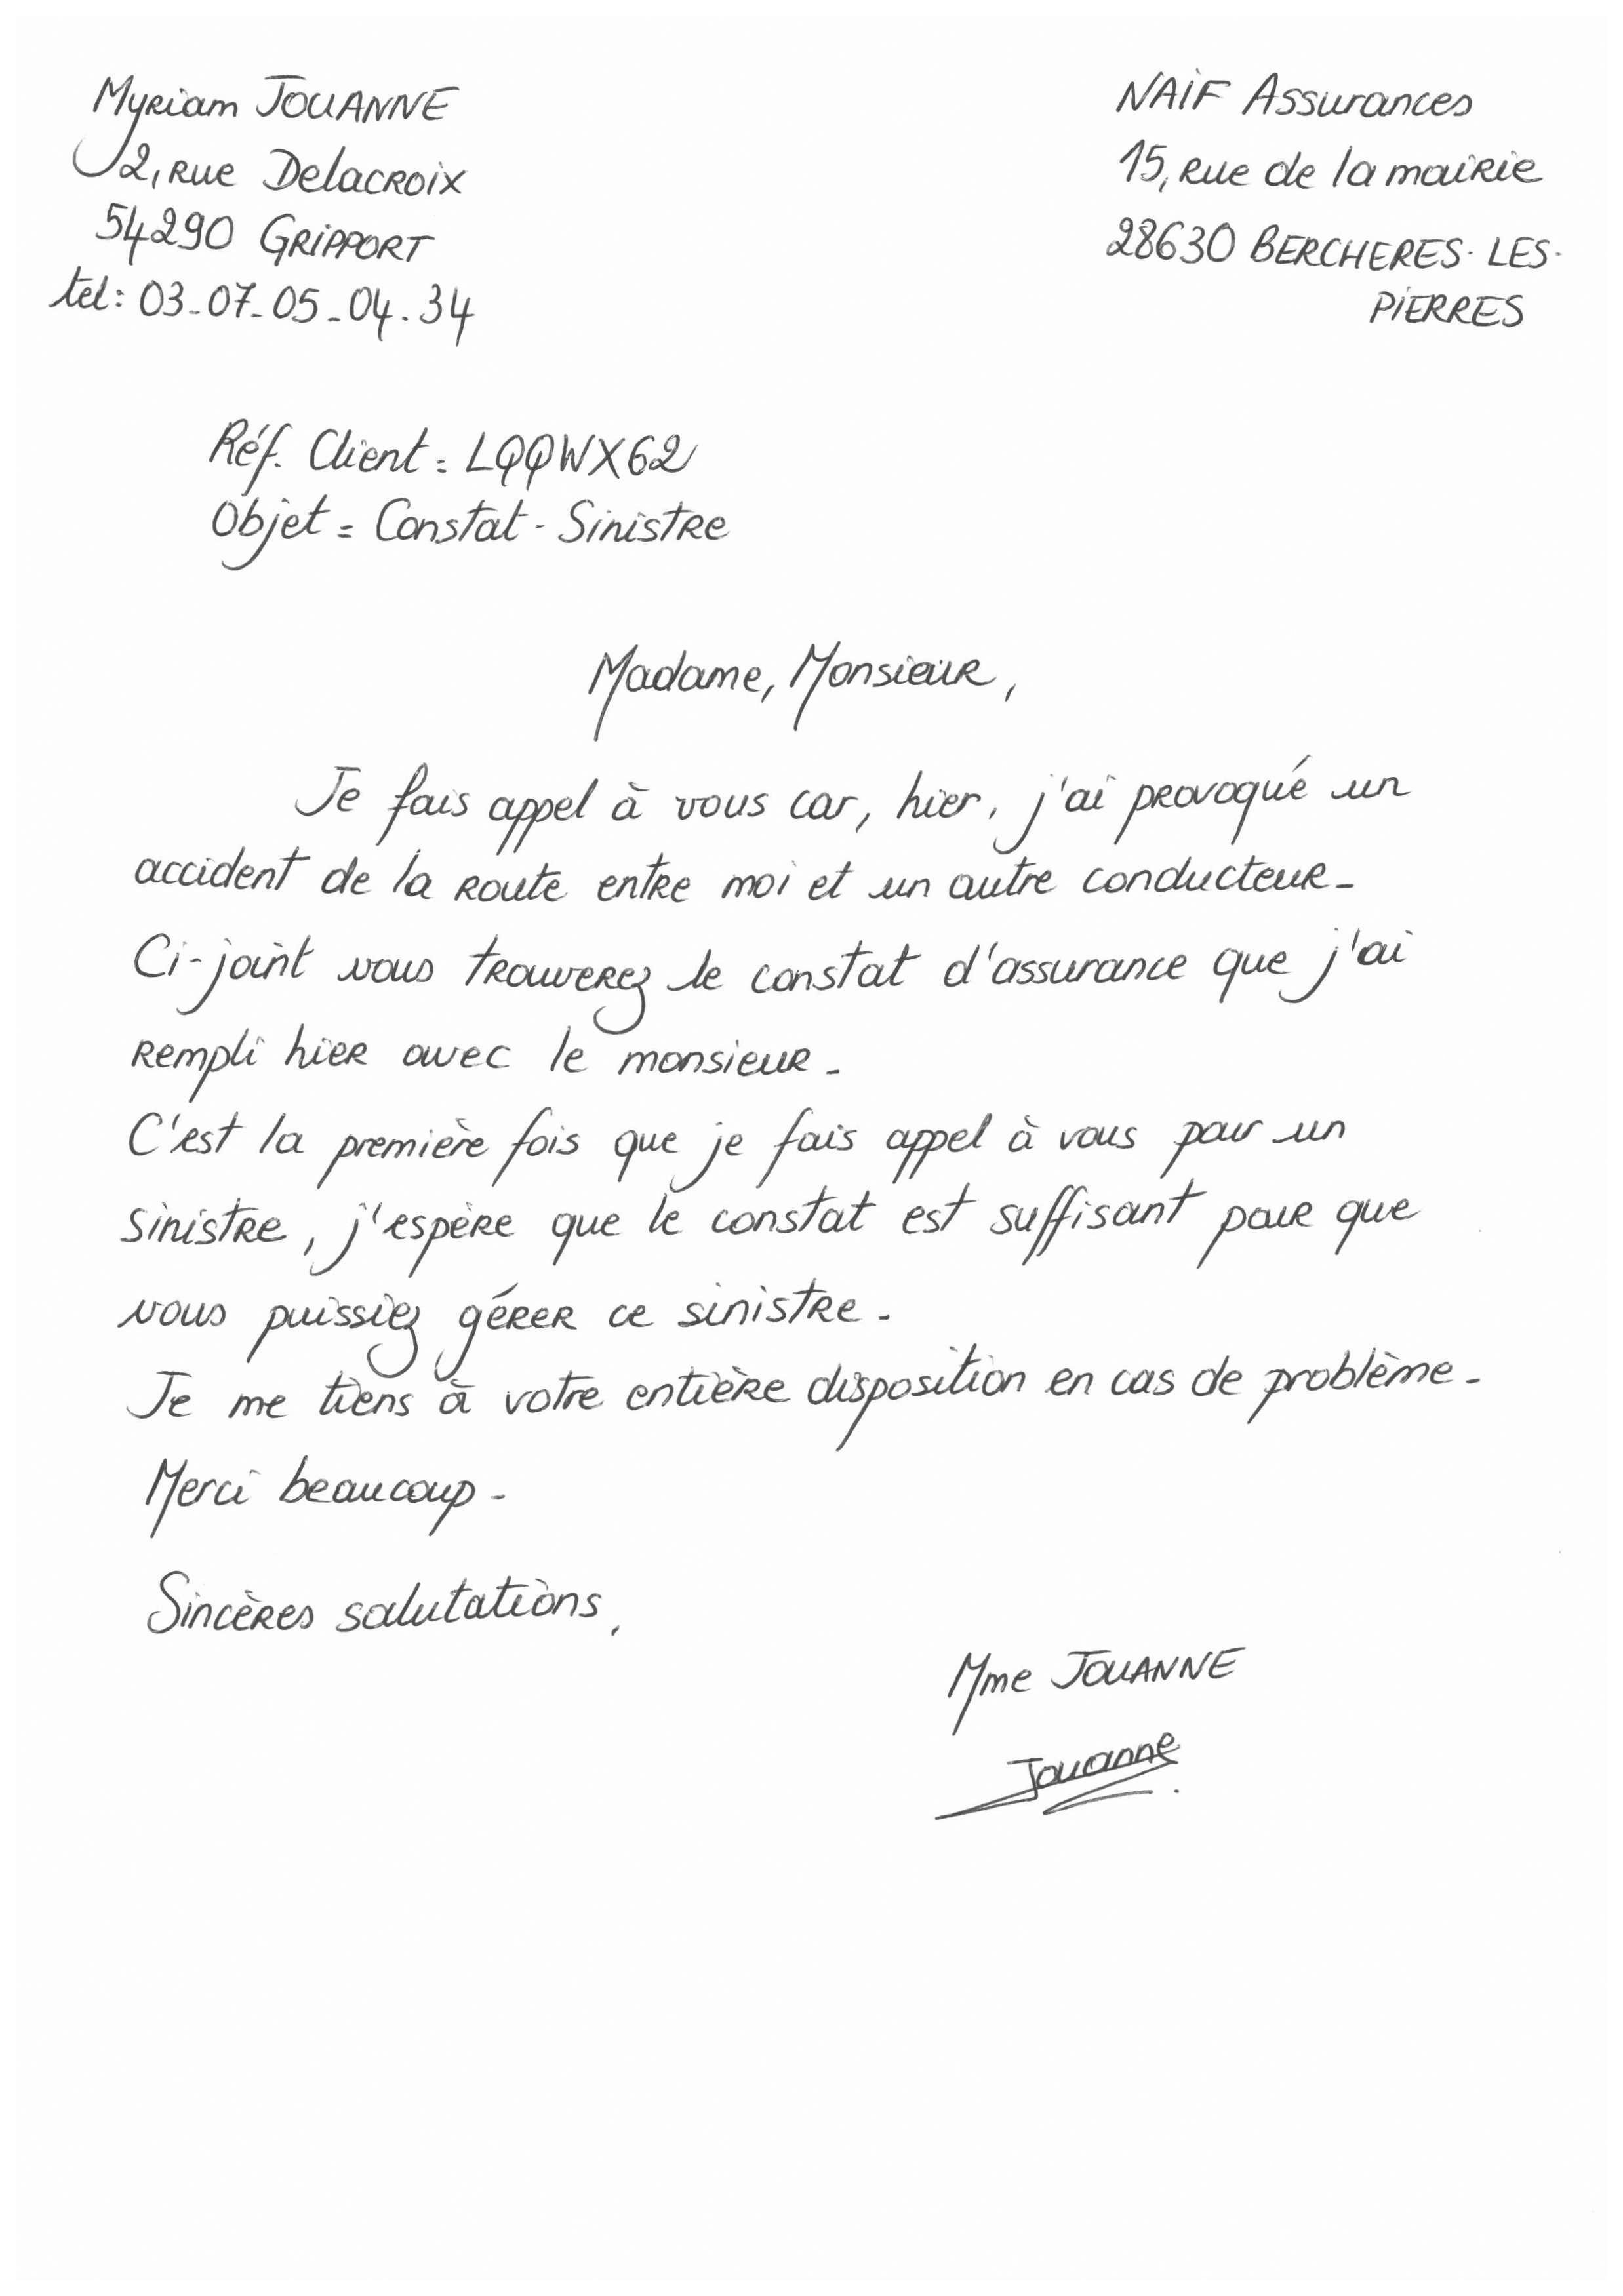 Myriam JOUANNE
2, rue Delacroix
54290 GRIPPORT
tel: 03-07-05-04.34
NAIF Assurances
15, rue de la mairie
28630 BERCHERES-LES-
PIERRES
Réf. Client = LQQWX62
Objet = Constat - Sinistre
Madame, Monsieur,
Je fais appel à vous car, hier, j'ai provoqué un
accident de la route entre moi et un autre conducteur.
Ci-joint vous trouverez le constat d'assurance que j'ai
rempli hier avec le monsieur.
C'est la première fois que je fais appel à vous pour un
sinistre, j'espère que le constat est suffisant pour que
vous puissiez gérer ce sinistre.
Je me tiens à votre entière disposition en cas de problème.
Merci beaucoup.
Sincères salutations,
Mme JOUANNE
Jouanne